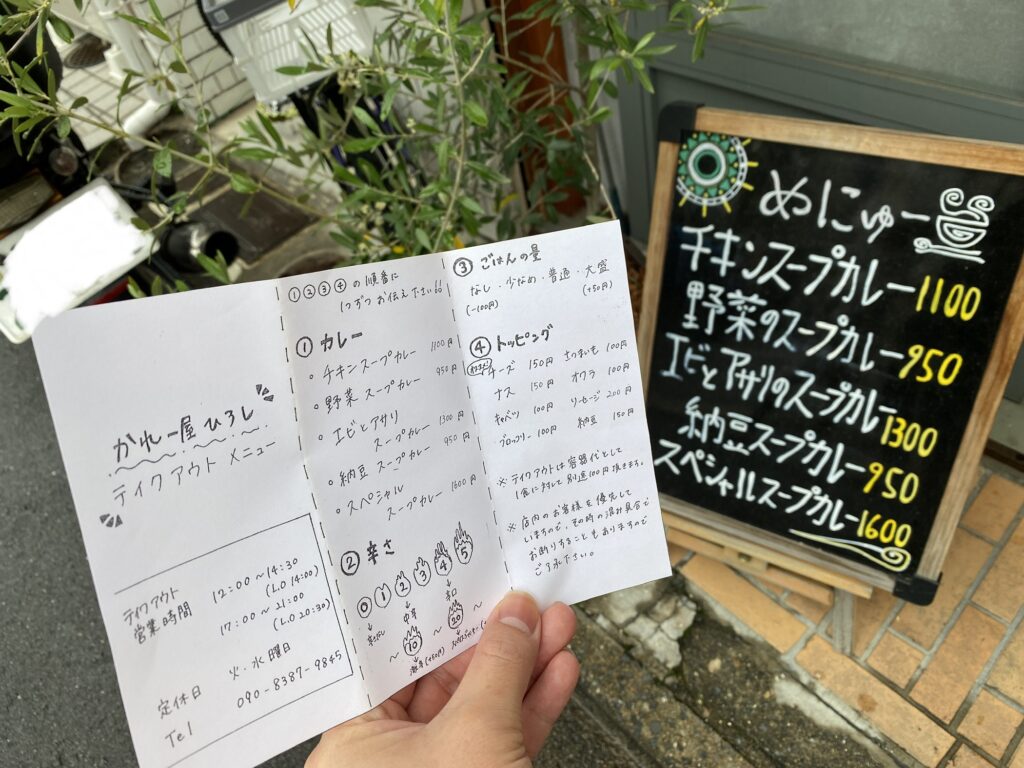 かれー屋ひろし
テイクアウト メニュー
テイクアウト
営業時間
12:00〜14:30
(L.O 14:00)
17:00〜21:00
(L.O 20:30)
定休日 火・水曜日
Tel 090-8387-9845
①②③④の順番に
1つずつお伝え下さい
① カレー
・チキンスープカレー 1100円
・野菜スープカレー 950円
・エビとアサリ
スープカレー 1300円
・納豆スープカレー 950円
・スペシャル
スープカレー 1600円
② 辛さ
0 1 2 3 4 5
中辛
辛口
〜 10 〜 20 〜
激辛(+50円)
③ ごはんの量
なし・少なめ・普通・大盛
(-100円) (+50円)
④ トッピング
チーズ 150円 さつまいも 100円
ナス 150円 オクラ 100円
キャベツ 100円 ソーセージ 200円
ブロッコリー 100円 納豆 150円
※ テイクアウトは容器代として
1食に対して別途100円頂きます。
※ 店内のお客様を優先して
いますので、その時の混み具合で
お断りすることもありますので
ご了承下さい。
めにゅー
チキンスープカレー 1100
野菜のスープカレー 950
エビとアサリのスープカレー 1300
納豆スープカレー 950
スペシャルスープカレー 1600